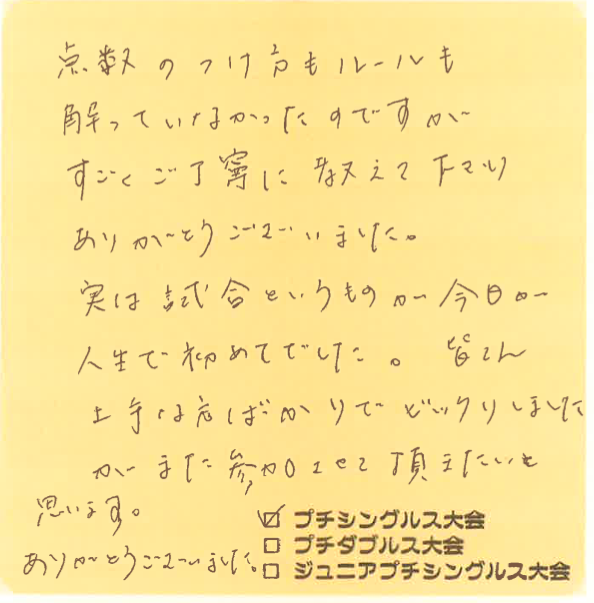 点数のつけ方もルールも
解っていなかったのですが
すごくご丁寧に教えて下さり
ありがとうございました。
実は試合というものが今日が
人生で初めてでした。皆さん
上手な方ばかりでビックリしました
がまた参加させて頂きたいと
思います。
ありがとうございました。
☑ プチシングルス大会
□ プチダブルス大会
□ ジュニアプチシングルス大会